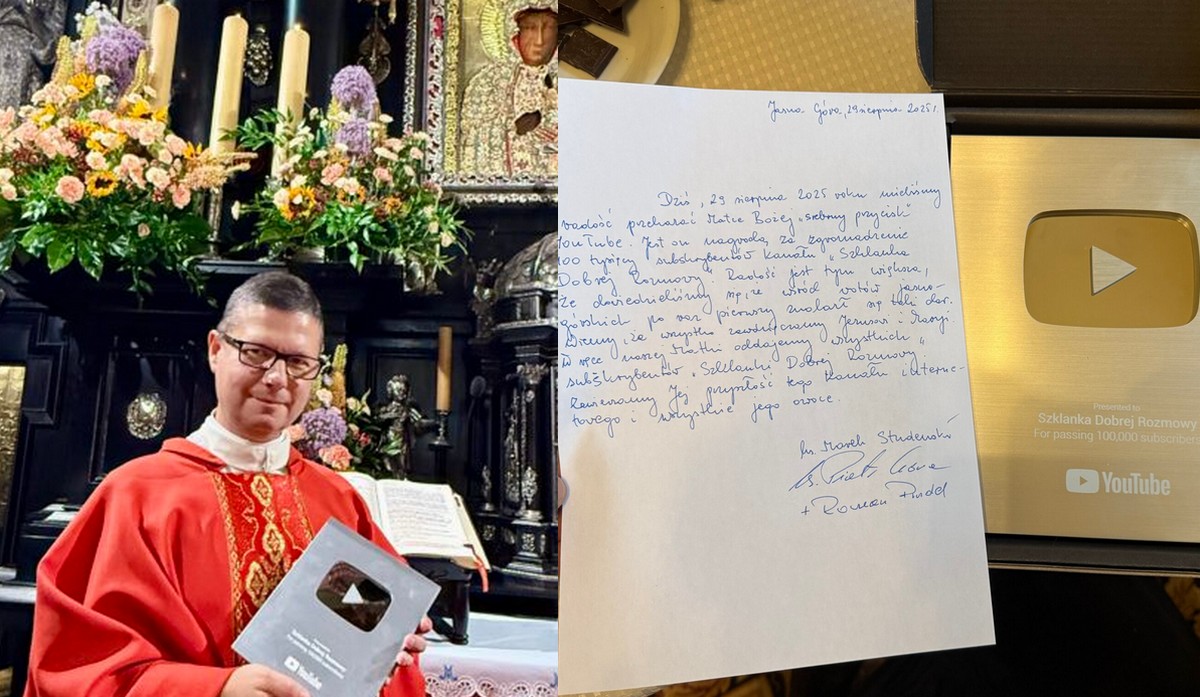 Presented to
Szklanka Dobrej Rozmowy
For passing 100,000 subscribers
YouTube
Jasna Góra, 29 sierpnia 2025 r.
Dziś, 29 sierpnia 2025 roku mieliśmy
radość przekazać Matce Bożej „srebrny przycisk"
YouTube. Jest on nagrodą za zgromadzenie
100 tysięcy subskrybentów kanału „Szklanka
Dobrej Rozmowy". Radość jest tym większa,
że dowiedzieliśmy się, że wśród wotów jasno-
górskich po raz pierwszy znalazł się taki dar.
Wiemy, że wszystko zawdzięczamy Jezusowi i Maryi.
W ręce naszej Matki oddajemy wszystkich
subskrybentów „Szklanki Dobrej Rozmowy".
Zawierzamy Jej przyszłość tego kanału interne-
towego i wszystkie jego owoce.
ks. Marek Studenski
+ Roman Pindel
Presented to
Szklanka Dobrej Rozmowy
For passing 100,000 subscribers
YouTube